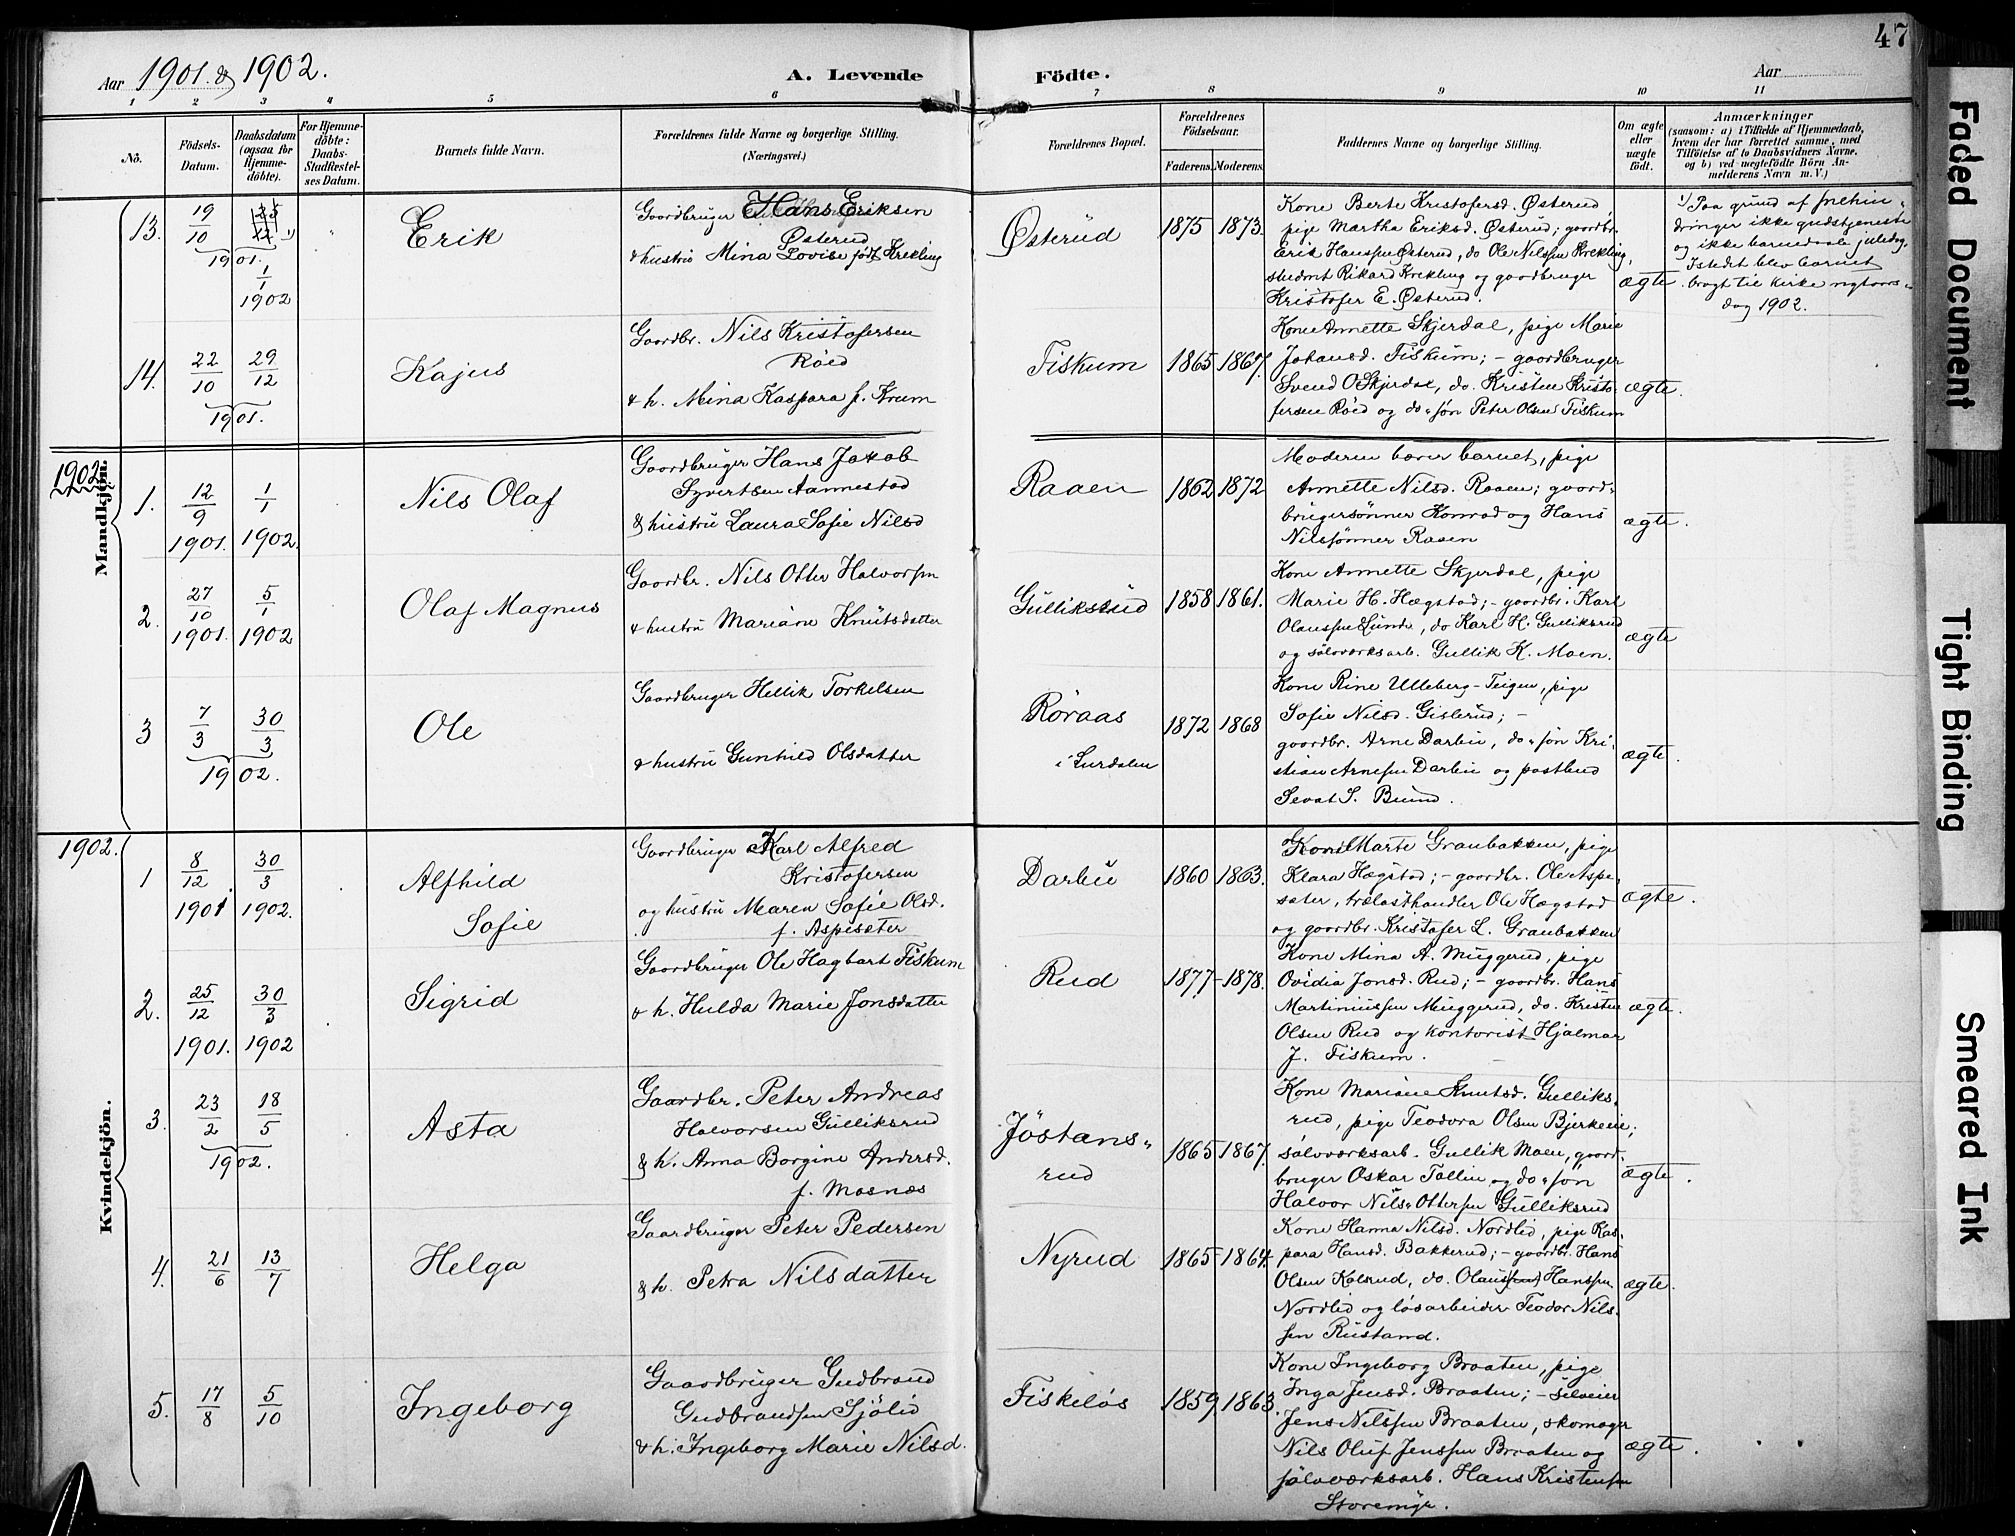 Aar 1901. & 1902.
A. Levende Födte.
Aar
47
1 2 3 4 5 6 7 8 9 10 11
No.
Födsels-Datum.
Daabsdatum (ogsaa for Hjemme-döbte).
For Hjemme-döbte: Daabs-Stadfæstel-ses Datum.
Barnets fulde Navn.
Forældrenes fulde Navne og borgerlige Stilling.
(Næringsvei.)
Forældrenes Bopæl.
Forældrenes Födselsaar.
Faderens. Moderens.
Faddernes Navne og borgerlige Stilling.
Om ægte eller uægte födt.
Anmærkninger
(saasom: a) i Tilfælde af Hjemmedaab, hvem der har forrettet samme, med Tilföielse af to Daabsvidners Navne, og b) ved uægtefödte Börn An-melderens Navn m. V.)
13. 19/10 1901. 1/1 1902
Erik
Gaardbruger Hans Eriksen
Østerud
& hustru Mina Lovise født Krekling
Østerud
1875 1873.
Kone Berte Kristofersd. Østerud,
pige Martha Eriksd. Østerud; gaardbr.
Erik Hanssen Østerud, do Ole Nilssen Krekling,
student Rikard Krekling og gaardbruger
Kristofer E. Østerud.
ægte
1) Paa grund af forhin-
dringer ikke gudstjeneste
og ikke barnedaab juledag.
Istedet blev barnet
bragt til kirke nytaars-
dag 1902.
14. 22/10 29/12 1901.
Kajus
Gaardbr. Nils Kristofersen
Røed
& h. Mina Kaspara f. Krum
Fiskum
1865 1867.
Kone Annette Skjerdal, pige Marie
Johansd. Fiskum; - gaardbruger
Svend O Skjerdal, do. Kristen Kristo-
fersen Røed og do. søn Peter Olsen Fiskum
ægte.
1902.
Mandkjön.
1. 12/9 1901. 1/1 1902.
Nils Olaf
Gaardbruger Hans Jakob
Syvertsen Aannestad
& hustru Laura Sofie Nilsd
Raaen
1862 1872
Moderen bærer barnet, pige
Annette Nilsd. Raaen; gaard-
brugersønner Konrad og Hans
Nilssønner Raaen
ægte.
2. 27/10 1901. 5/1 1902
Olaf Magnus
Gaardbr. Nils Otter Halvorsen
& hustru Mariane Knutsdatter
Gulliksrud
1858 1861.
Kone Annette Skjerdal, pige
Marie H. Hægstad; - gaardbr. Karl
Olaussen Lunde, do Karl H. Gulliksrud
og sølvværksarb. Gullik K. Moen.
ægte
3 7/3 30/3 1902.
Ole
Gaardbruger Hellik Torkelsen
& hustru Gunhild Olsdatter
Røraas
i Surdalen
1872 1868
Kone Rine Ulleberg-Teigen, pige
Sofie Nilsd. Gislerud; -
gaardbr. Arne Darbu, do. søn Kri-
stian Arnesen Darbu og postbud
Sevat S. Buind.
ægte.
1902.
Kvindekjön.
1 8/12 1901. 30/3 1902.
Alfhild
Sofie
Gaardbruger Karl Alfred
Kristofersen
og hustru Maren Sofie Olsd.
f. Aspesæter
Darbu
1860 1863.
Kone Marte Granbakken, pige
Klara Hægstad; - gaardbr. Ole Aspe-
sæter, trælasthandler Ole Hægstad
og gaardbr. Kristofer L. Granbakken
ægte.
2. 25/12 1901. 30/3 1902
Sigrid
Gaardbruger Ole Hagbart Fiskum
& h. Hulda Marie Jonsdatter
Rud
1877 - 1878.
Kone Mina A. Muggerud, pige
Ovidia Jonsd. Rud; - gaardbr. Hans
Martiniussen Muggerud, do. Kristen
Olsen Rud og kontorist Hjalmar
J. Fiskum.
ægte.
3. 23/2 18/5 1902.
Asta
Gaardbr. Peter Andreas
Halvorsen Gulliksrud
& h. Anna Borgine Andersd.
f. Mosnæs
Jøstans-
rud
1865 1867.
Kone Mariane Knutsd. Gulliks-
rud, pige Teodora Olsen Bjerkeeie;
sølvværksarb. Gullik Moen, gaard-
bruger Oskar Tollin og do. søn
Halvor Nils-Ottersen Gulliksrud
ægte.
4. 21/6 13/7
Helga
Gaardbruger Peter Pedersen
& h. Petra Nilsdatter
Nyrud
1865 - 1864.
Kone Hanna Nilsd. Nordlid, pige Kas-
para Hansd. Bakkerud; - gaardbr. Hans
Olsen Kolsrud, do. Olaus Hanssen
Nordlid og løsarbeider Teodor Nils-
sen Rustand.
ægte.
5. 17/8 5/10
Ingeborg
Gaardbruger Gudbrand
Gudbrandsen Sjølid
& h. Ingeborg Marie Nilsd.
Fiskeløs
1859. 1863.
Kone Ingeborg Braaten, pige
Inga Jensd. Braaten; - selveier
Jens Nilssen Braaten, skomager
Nils Oluf Jenssen Braaten og
sølvværksarb. Hans Kristensen
Storemyr.
ægte.
Faded Document
Tight Binding
Smeared Ink